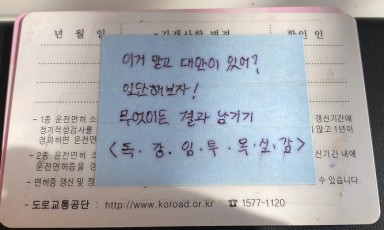 년 월 일
기재사항 변경
확 인 인
이거 말고 대안이 있어?
일단해보자!
무엇이든 결과 남기기
<독·강·임·투·목·실·감>
- 1종 운전면허 소
갱신기간에
정기적성검사를
않고 1년이
경과하면 운전면
- 2종 운전면허 소
갱신기간 내에
운전면허증을 갱
- 면허증 갱신 및 정
수 있습니다.
- 도로교통공단 : http://www.koroad.or.kr ☎ 1577-1120